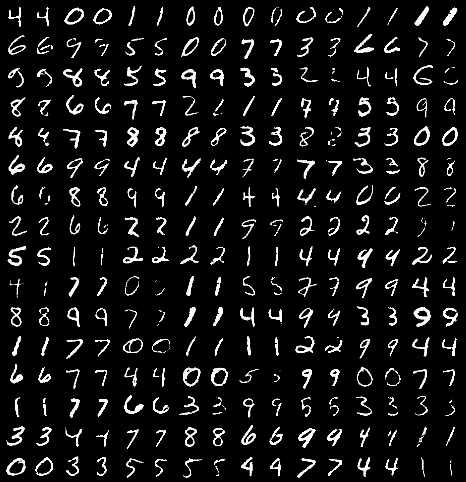 4 4 0 0 1 1 0 0 0 0 0 0 1 1 1 1
6 6 9 9 5 5 0 0 7 7 3 3 6 6 7 7
9 9 8 8 5 5 9 9 3 3 2 2 4 4 6 6
8 8 6 6 7 7 2 2 1 1 7 7 5 5 9 9
8 8 7 7 8 8 8 8 3 3 8 8 3 3 0 0
6 6 9 9 4 4 4 4 7 7 7 7 3 3 8 8
6 6 8 8 9 9 1 1 4 4 4 4 0 0 2 2
2 2 6 6 2 2 1 1 9 9 2 2 2 2 9 9
5 5 1 1 2 2 2 2 1 1 4 4 9 9 2 2
4 7 7 0 1 1 5 5 7 7 9 9 4 4
8 8 9 9 7 7 1 1 4 4 9 9 3 3 9 9
1 1 7 7 0 0 1 1 1 1 2 2 9 9 4 4
6 6 7 7 4 4 0 0 5 5 9 9 0 0 7 7
1 1 7 7 6 6 3 3 9 9 5 5 3 3 3 3
3 3 4 4 7 7 8 8 6 6 9 9 4 4 1 1
0 0 3 3 5 5 5 5 4 4 7 7 4 4 1 1